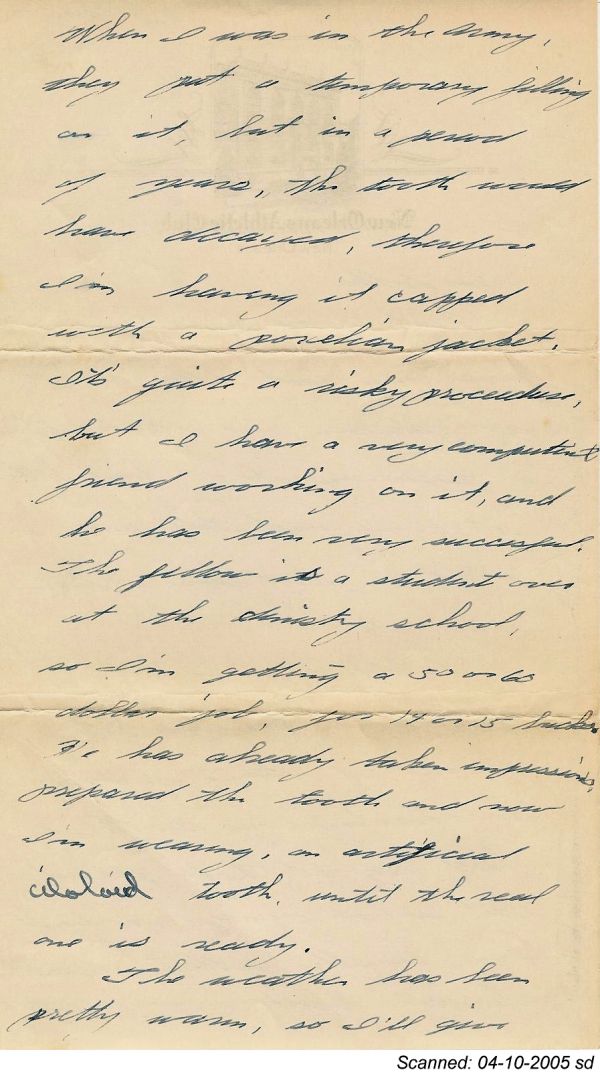 When I was in the Army,
they put a temporary filling
on it, but in a period
of years, the tooth would
have decayed, therefore
I'm having it capped
with a porelian jacket.
It's quite a risky procedure,
but I have a very computint
friend working on it, and
he has been very succesful.
The fellow is a student over
at the dinisty school,
so I'm getting a 50 or 60
dollar job, for 14 or 15 bucks.
He has already taken impressions,
prepared the tooth and now
I'm wearing, an artificial
tooth, until the real
one is ready.
The weather has been
pretty warm, so I'll give
New Orleans Athletic Club
Scanned: 04-10-2005 sd